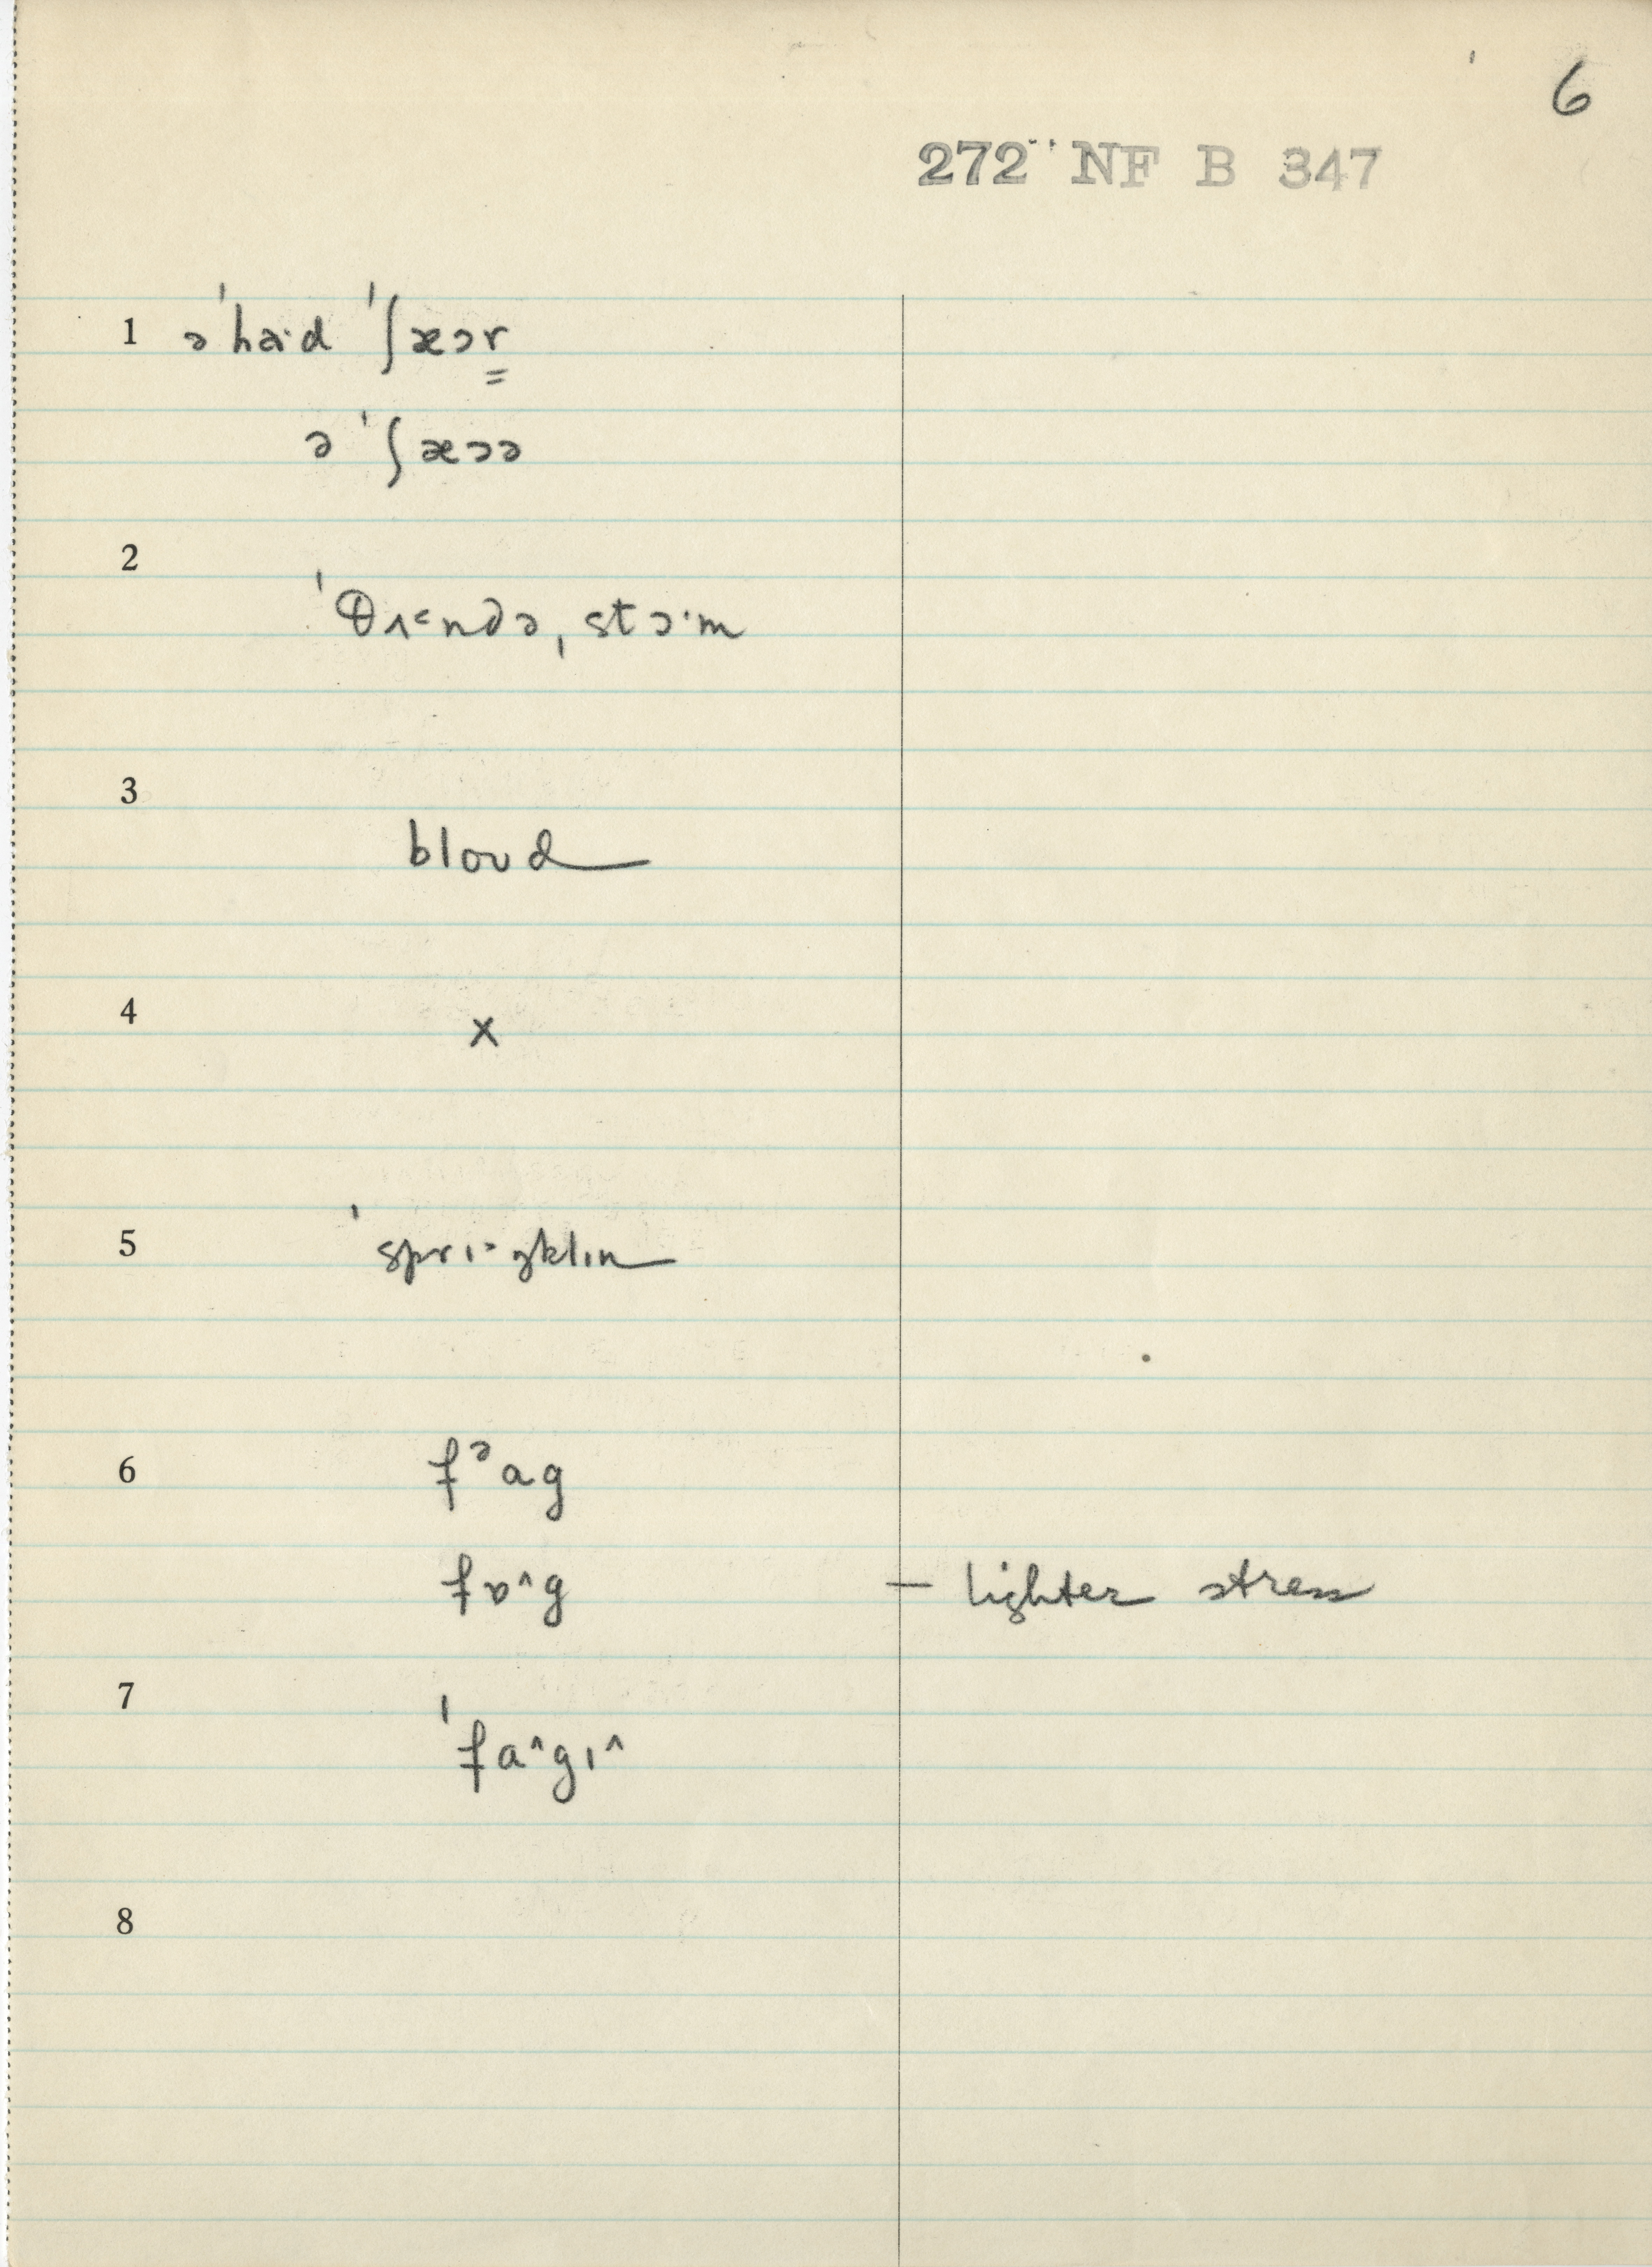 6
272 NF B 347
1 ə ˈha·d ˈʃæər
ə ˈʃæəə
2
ˈθʌ˂ndə ˌstɔ·m
3
bloud
4
x
5
ˈsprɪ˃ŋklɪn
6
fᵊag
fɒ^g
— lighter stress
7
ˈfa^gɪ^
8